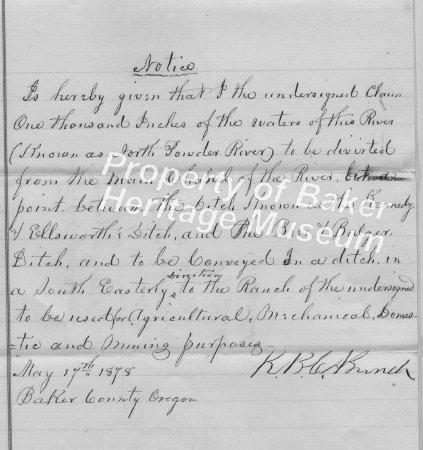 Notice
Is hereby given that I the undersigned Claim
One thousand Inches of the waters of this River
(Known as North Powder River) to be diverted
from the main Channel of the River,
point between the Ditch Known as the Kennedy
& Ellsworth's Ditch, and The
Ditch, and to be Conveyed In a ditch, in
a South Easterly Direction to the Ranch of the undersigned
to be used for Agricultural, Mechanical, Domes-
-tic and Mining purposes-
May 17th 1878
Baker County Oregon
Property of Baker
Heritage Museum